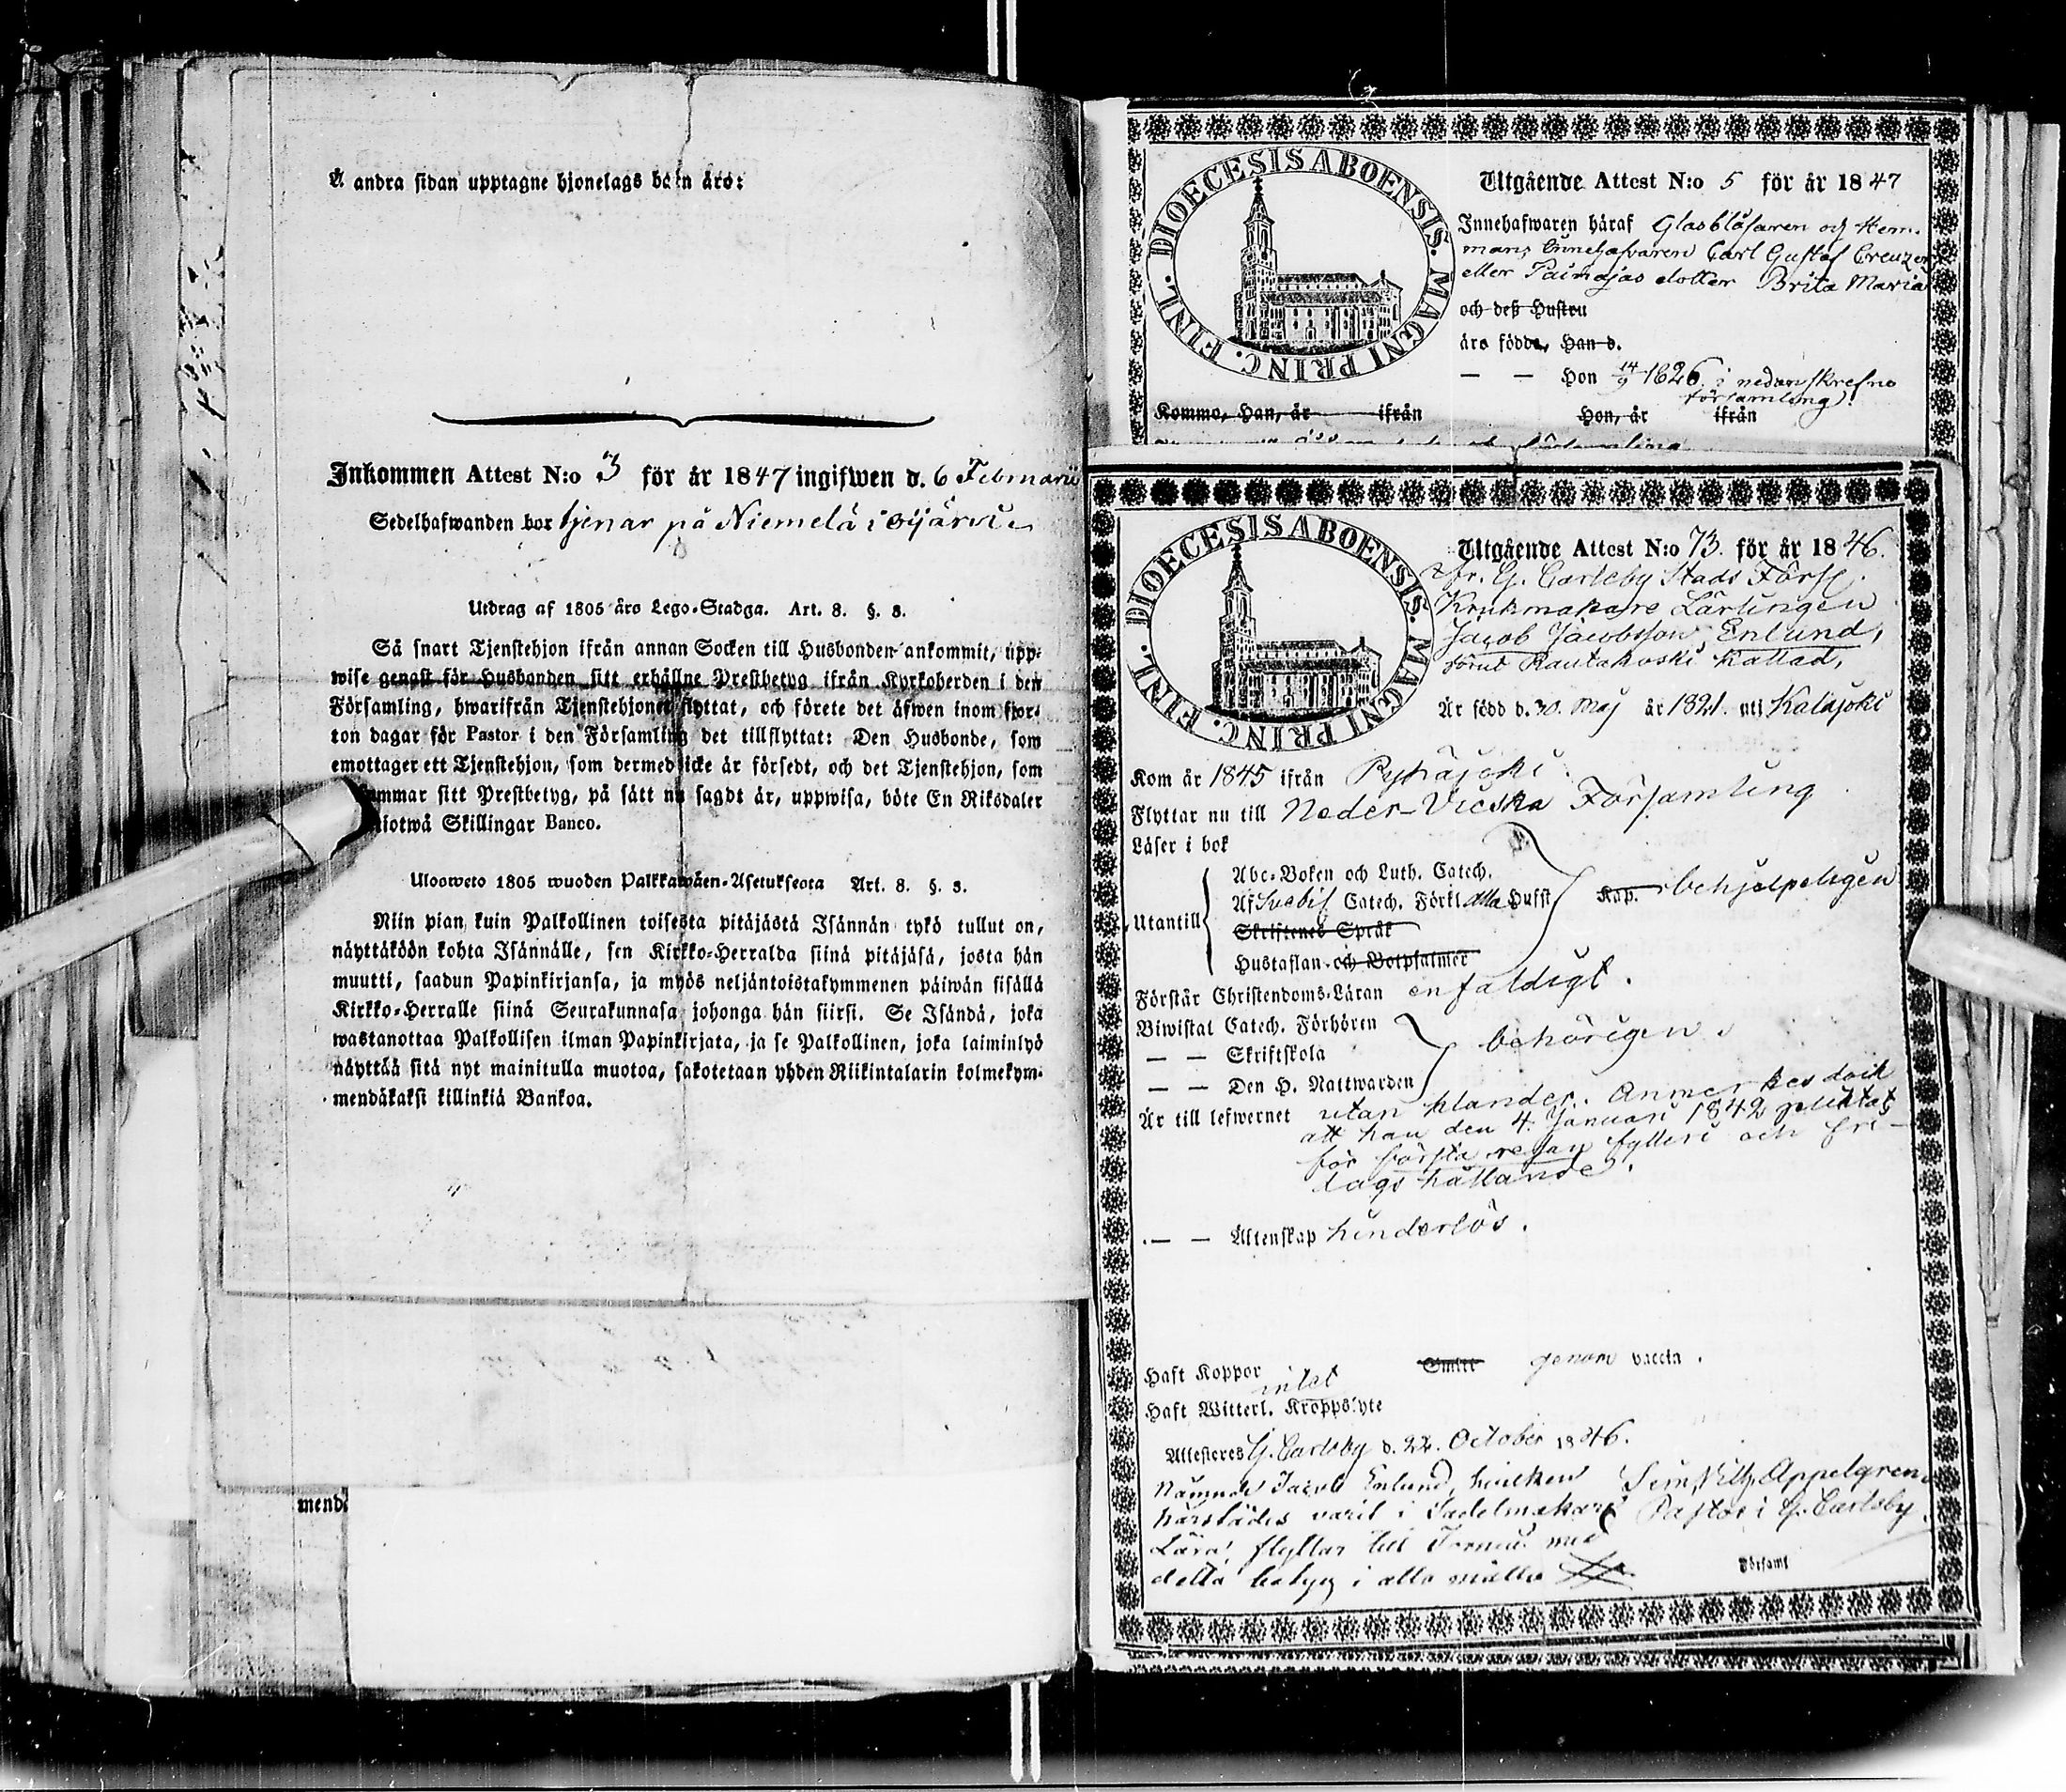 Å andra sidan upptagne hjonelags barn äro:
Inkommen Attest N:o 3 för år 1847 ingifwen d. 6 Februarii
Sedelhafwanden bor tjenar på Niemelä i Oijärvi
Utdrag af 1805 års Lego-Stadga. Art. 8. §. 8.
Så snart Tjenstehjon ifrån annan Socken till Husbonden ankommit, upp-
wise genast för Husbonden sitt erhållne Prestbetyg ifrån Kyrkoherden i den
Församling, hwarifrån Tjenstehjonet flyttat, och förete det äfwen inom fjor-
ton dagar för Pastor i den Församling det tillflyttat: Den Husbonde, som
emottager ett Tjenstehjon, som dermed icke är försedt, och det Tjenstehjon, som
ummar sitt Prestbetyg, på sätt nu sagdt är, uppwisa, böte En Riksdaler
tiotwå Skillingar Banco.
Ulosweto 1805 wuoden Palkkawäen-Asetuksesta Art. 8. §. 8.
Niin pian kuin Palkollinen toisesta pitäjästä Isännän tykö tullut on,
näyttäköön kohta Isännälle, sen Kirkko-Herralda siinä pitäjäsä, josta hän
muutti, saadun Papinkirjansa, ja myös neljäntoistakymmenen päiwän sisällä
Kirkko-Herralle siinä Seurakunnasa johonga hän siirsi. Se Isändä, joka
wastanottaa Palkollisen ilman Papinkirjata, ja se Palkollinen, joka laiminlyö
näyttää sitä nyt mainitulla muotoa, sakotetaan yhden Riikintalarin kolmekym-
mendäkaksi killinkiä Bankoa.
mendä
DIOECESIS ABOENSIS. MAGNI PRINC. FINL.
Utgående Attest N:o 5 för år 1847
Innehafwaren häraf Glasblåsaren och Hem-
mans innehafvaren Carl Gustaf Creuzer
eller Paimajas dotter Brita Maria
och deß Hustru
äro födde, Han d.
— — Hon 14/9 1826. i nedanskrefne
församling.
Kommo, Han, år ifrån Hon, år ifrån
DIOECESIS ABOENSIS. MAGNI PRINC. FINL.
Utgående Attest N:o 73. för år 1846.
fr. G. Carleby Stads Förs.
Krukmakare Lärlingen
Jacob Jacobsson Enlund,
förut Rautakoski kallad,
Är född d. 30. Maj år 1821. uti Kalajoki
Kom år 1845 ifrån Pyhäjoki
Flyttar nu till Neder-Vieska Församling
Läser i bok
Abc-Boken och Luth. Catech.
Utantill Af Svebil. Catech. Förkl. alla Hufst Kap. behjelpeligen
Skriftenes Språk
Hustaflan och Botpsalmer
Förstår Christendoms-Läran enfaldigt.
Biwistat Catech. Förhören
— — Skriftskola behörigen.
— — Den H. Nattwarden
Är till lefwernet utan klander. Anmerkes dock
att han den 4. Januari 1842 pliktat
för första resan fylleri och fri-
dags hållande.
— — Äktenskap hinderlös.
Haft Koppor Smitt genom vaccin.
intet
Haft Witterl. Kroppslyte
Attesteres G. Carleby d. 22. October 1846.
Nämnde Jacob Enlund, hvilken
härstädes varit i Sadelmakare
Lära, flyttar till Torneå med
detta betyg i alla måtto
Appelgren
Pastor i G. Carleby.
Församl